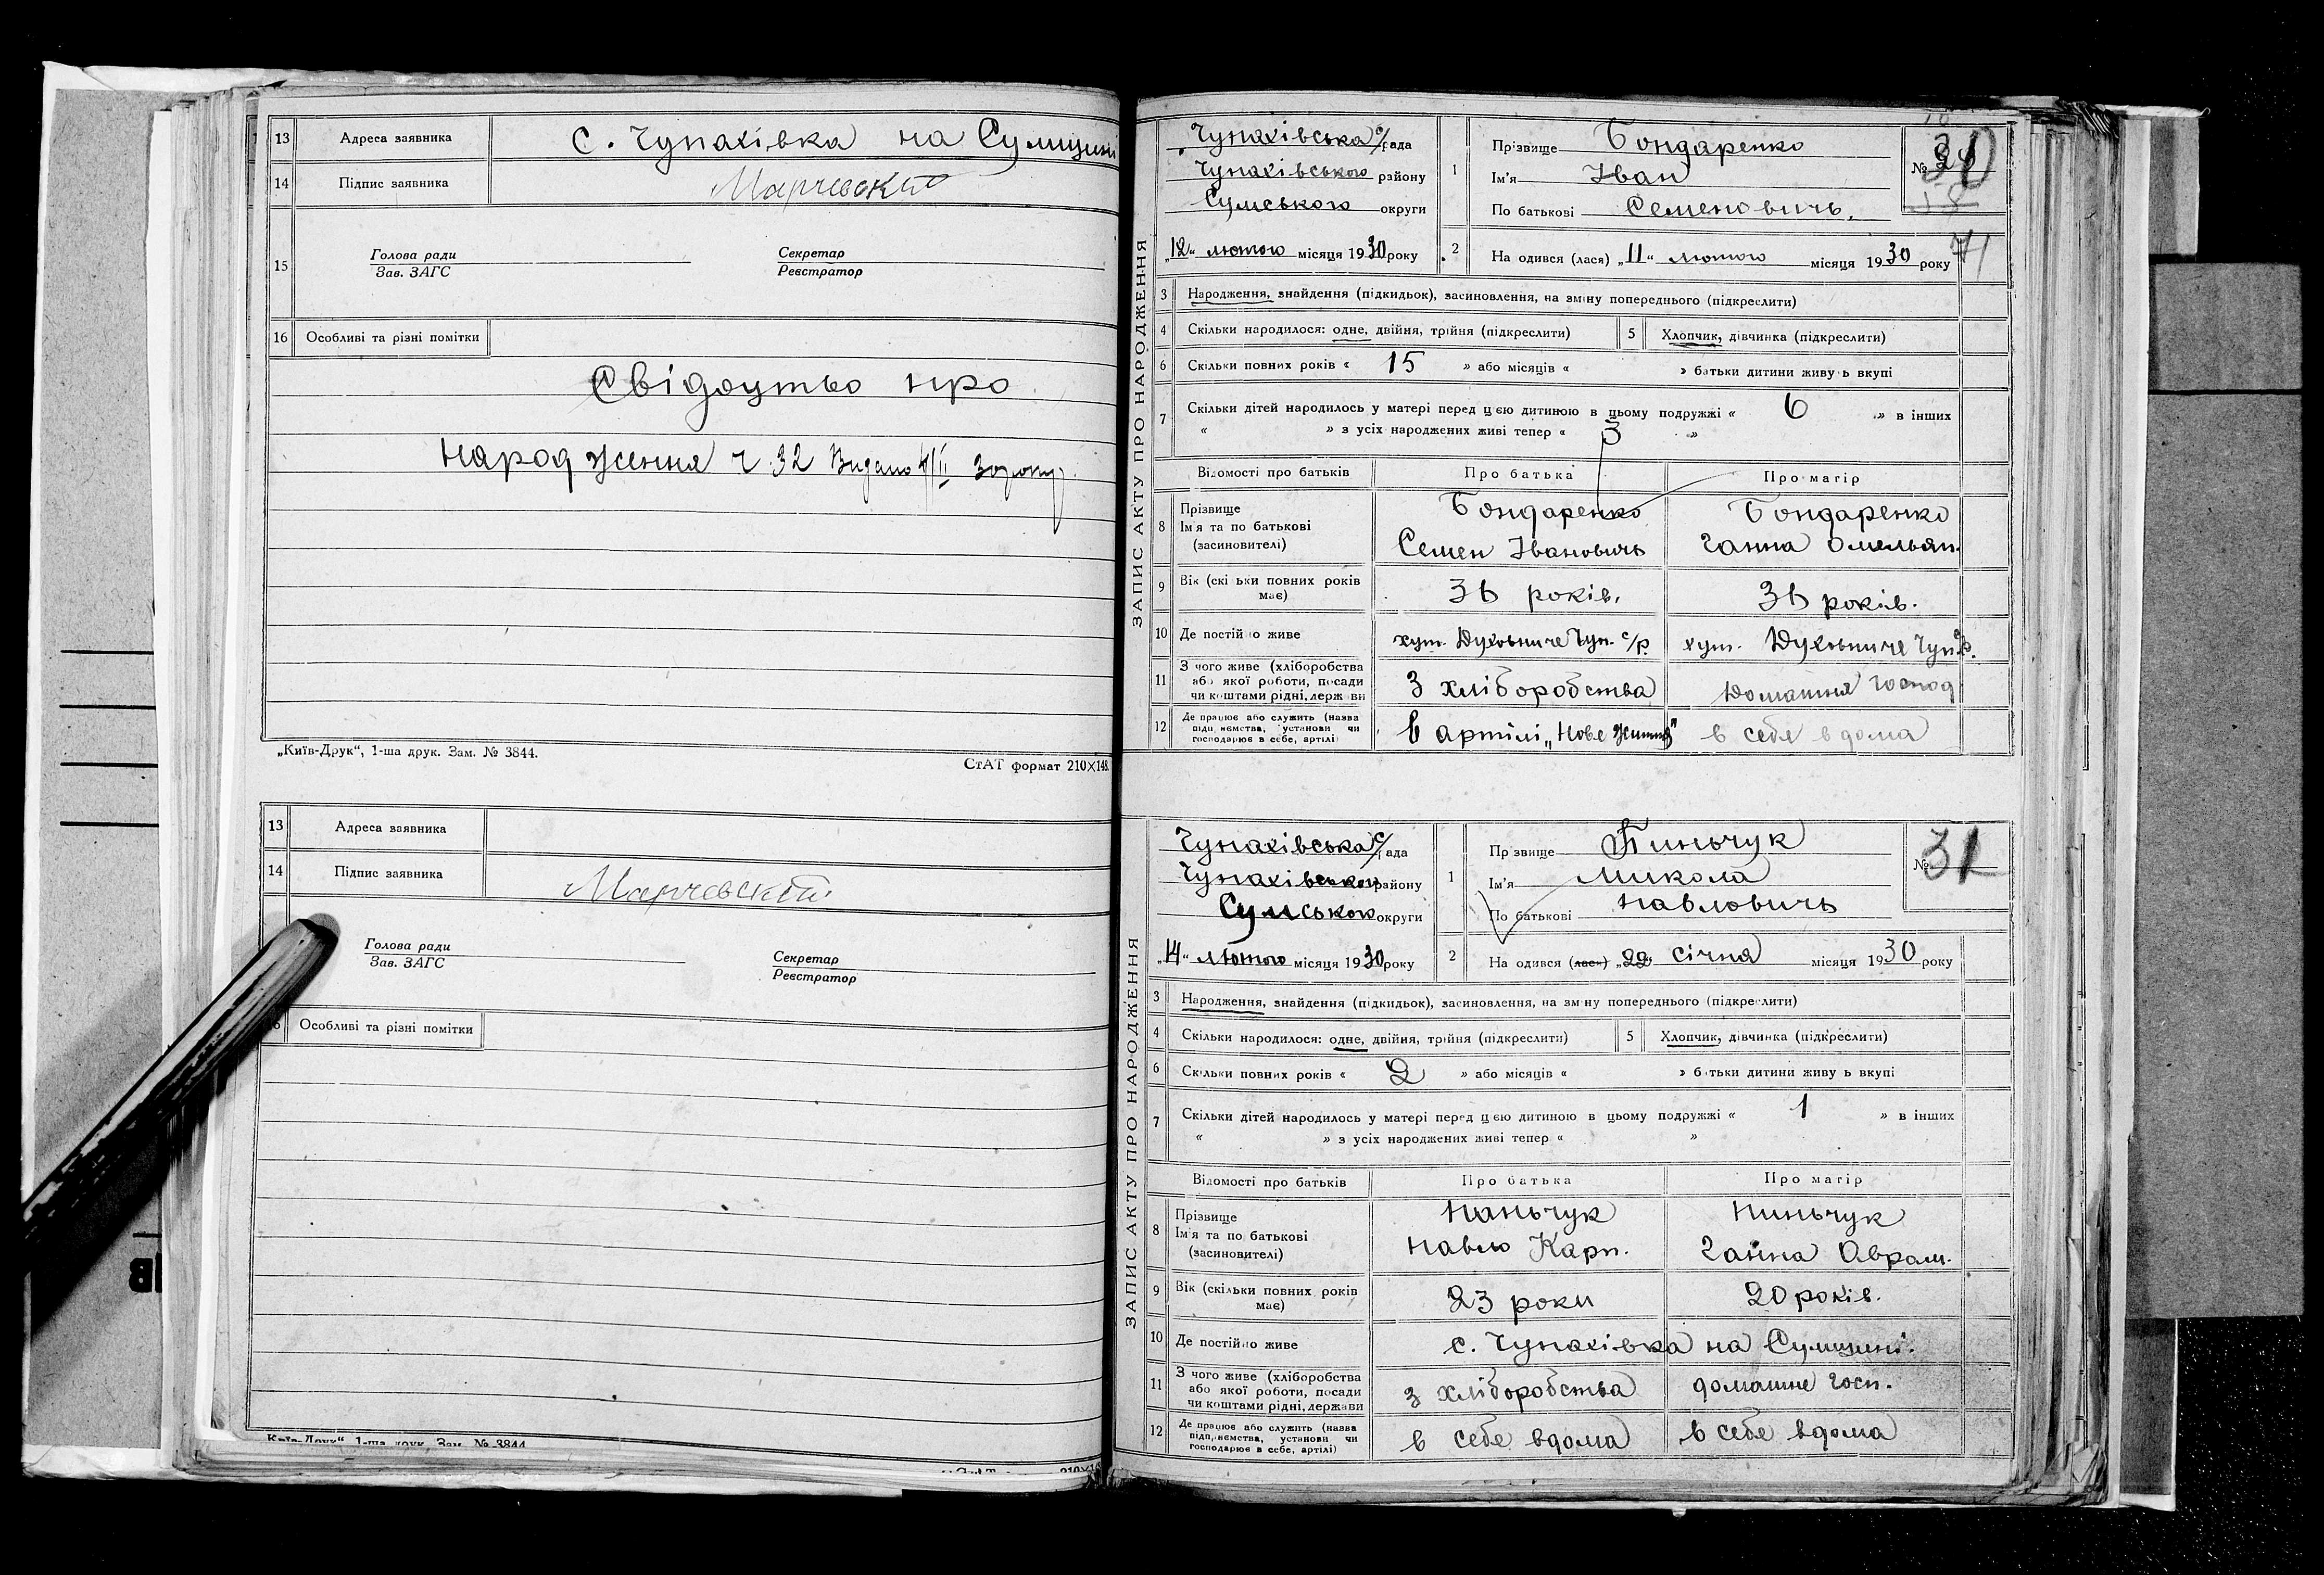 13 Адреса заявника с. Чупахівка на Сумщині
14 Підпис заявника Марчевский
15 Голова ради Секретар
Зав. ЗАГС Реєстратор
16 Особливі та різні помітки
Свідоцтво про
народження ч. 32 Видано 30 року
„Київ-Друк“, 1-ша друк. Зам. № 3844.
СтАТ формат 210×148
13 Адреса заявника
14 Підпис заявника Марчевский
Голова ради Секретар
Зав. ЗАГС Реєстратор
Особливі та різні помітки
Київ-Друк“, 1-ша друк. Зам. № 3844
ЗАПИС АКТУ ПРО НАРОДЖЕННЯ
Чупахівська с/рада
Чупахівського району
Сумського округи
„12“ лютого місяця 1930 року
1 Прізвище Бондаренко
Ім'я Іван
По батькові Семеновичь.
№ 30
71
2 На одився (лася) „11“ лютого місяця 1930 року
3 Народження, знайдення (підкидьок), засиновлення, на зміну попереднього (підкреслити)
4 Скільки народилося: одне, двійня, трійня (підкреслити) 5 Хлопчик, дівчинка (підкреслити)
6 Скільки повних років « 15 » або місяців « » батьки дитини живу ь вкупі
7 Скільки дітей народилось у матері перед цією дитиною в цьому подружжі « 6 » в інших
« » з усіх народжених живі тепер « 3 »
Відомості про батьків Про батька Про матір
8 Прізвище Бондаренко Бондаренко
Ім'я та по батькові Семен Івановичь Ганна Омельян.
(засиновителі)
9 Вік (скі ьки повних років має) 36 років. 36 років.
10 Де постійно живе хут. Духовниче Чуп. с/р. хут. Духовниче Чуп. с/р.
11 З чого живе (хліборобства
або якої роботи, посади
чи коштами рідні, держ ви З хліборобства Домашня господ
12 Де працює або служить (назва
підприємства, установи чи
господарює в себе, артілі) в артілі „Нове Життя" в себе вдома
ЗАПИС АКТУ ПРО НАРОДЖЕННЯ
Чупахівська с/рада
Чупахівськог району
Сумськог округи
„14“ лютого місяця 1930 року
1 Пр звище Пиньчук
Ім'я Микола
По батькові Павловичь
№ 31
2 На одився (лася) „22“ січня місяця 1930 року
3 Народження, знайдення (підкидьок), засиновлення, на зміну попереднього (підкреслити)
4 Скільки народилося: одне, двійня, трійня (підкреслити) 5 Хлопчик, дівчинка (підкреслити)
6 Скільки повних років « 2 » або місяців « » батьки дитини живу ь вкупі
7 Скільки дітей народилось у матері перед цією дитиною в цьому подружжі « 1 » в інших
« » з усіх народжених живі тепер « »
Відомості про батьків Про батька Про матір
8 Прізвище Паньчук Пиньчук
Ім'я та по батькові Павло Карп. Ганна Аврам.
(засиновителі)
9 Вік (скільки повних років має) 23 роки 20 років.
10 Де постійно живе с. Чупахівка на Сумщині.
11 З чого живе (хліборобства
або якої роботи, посади
чи коштами рідні, держави з хліборобства домашне госп.
12 Де працює або служить (назва
підприємства, установи чи
господарює в себе, артілі) в себе вдома в себе вдома